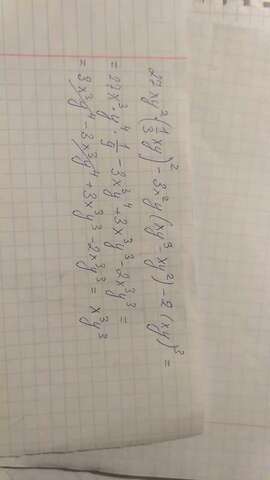 27xy²(1/3xy)² - 3x²y(xy³ - xy²) - 2(xy)³ =
= 27x³·y⁴·1/9 - 3x³y⁴ + 3x³y³ - 2x³y³ =
= 3x³y⁴ - 3x³y⁴ + 3x³y³ - 2x³y³ = x³y³